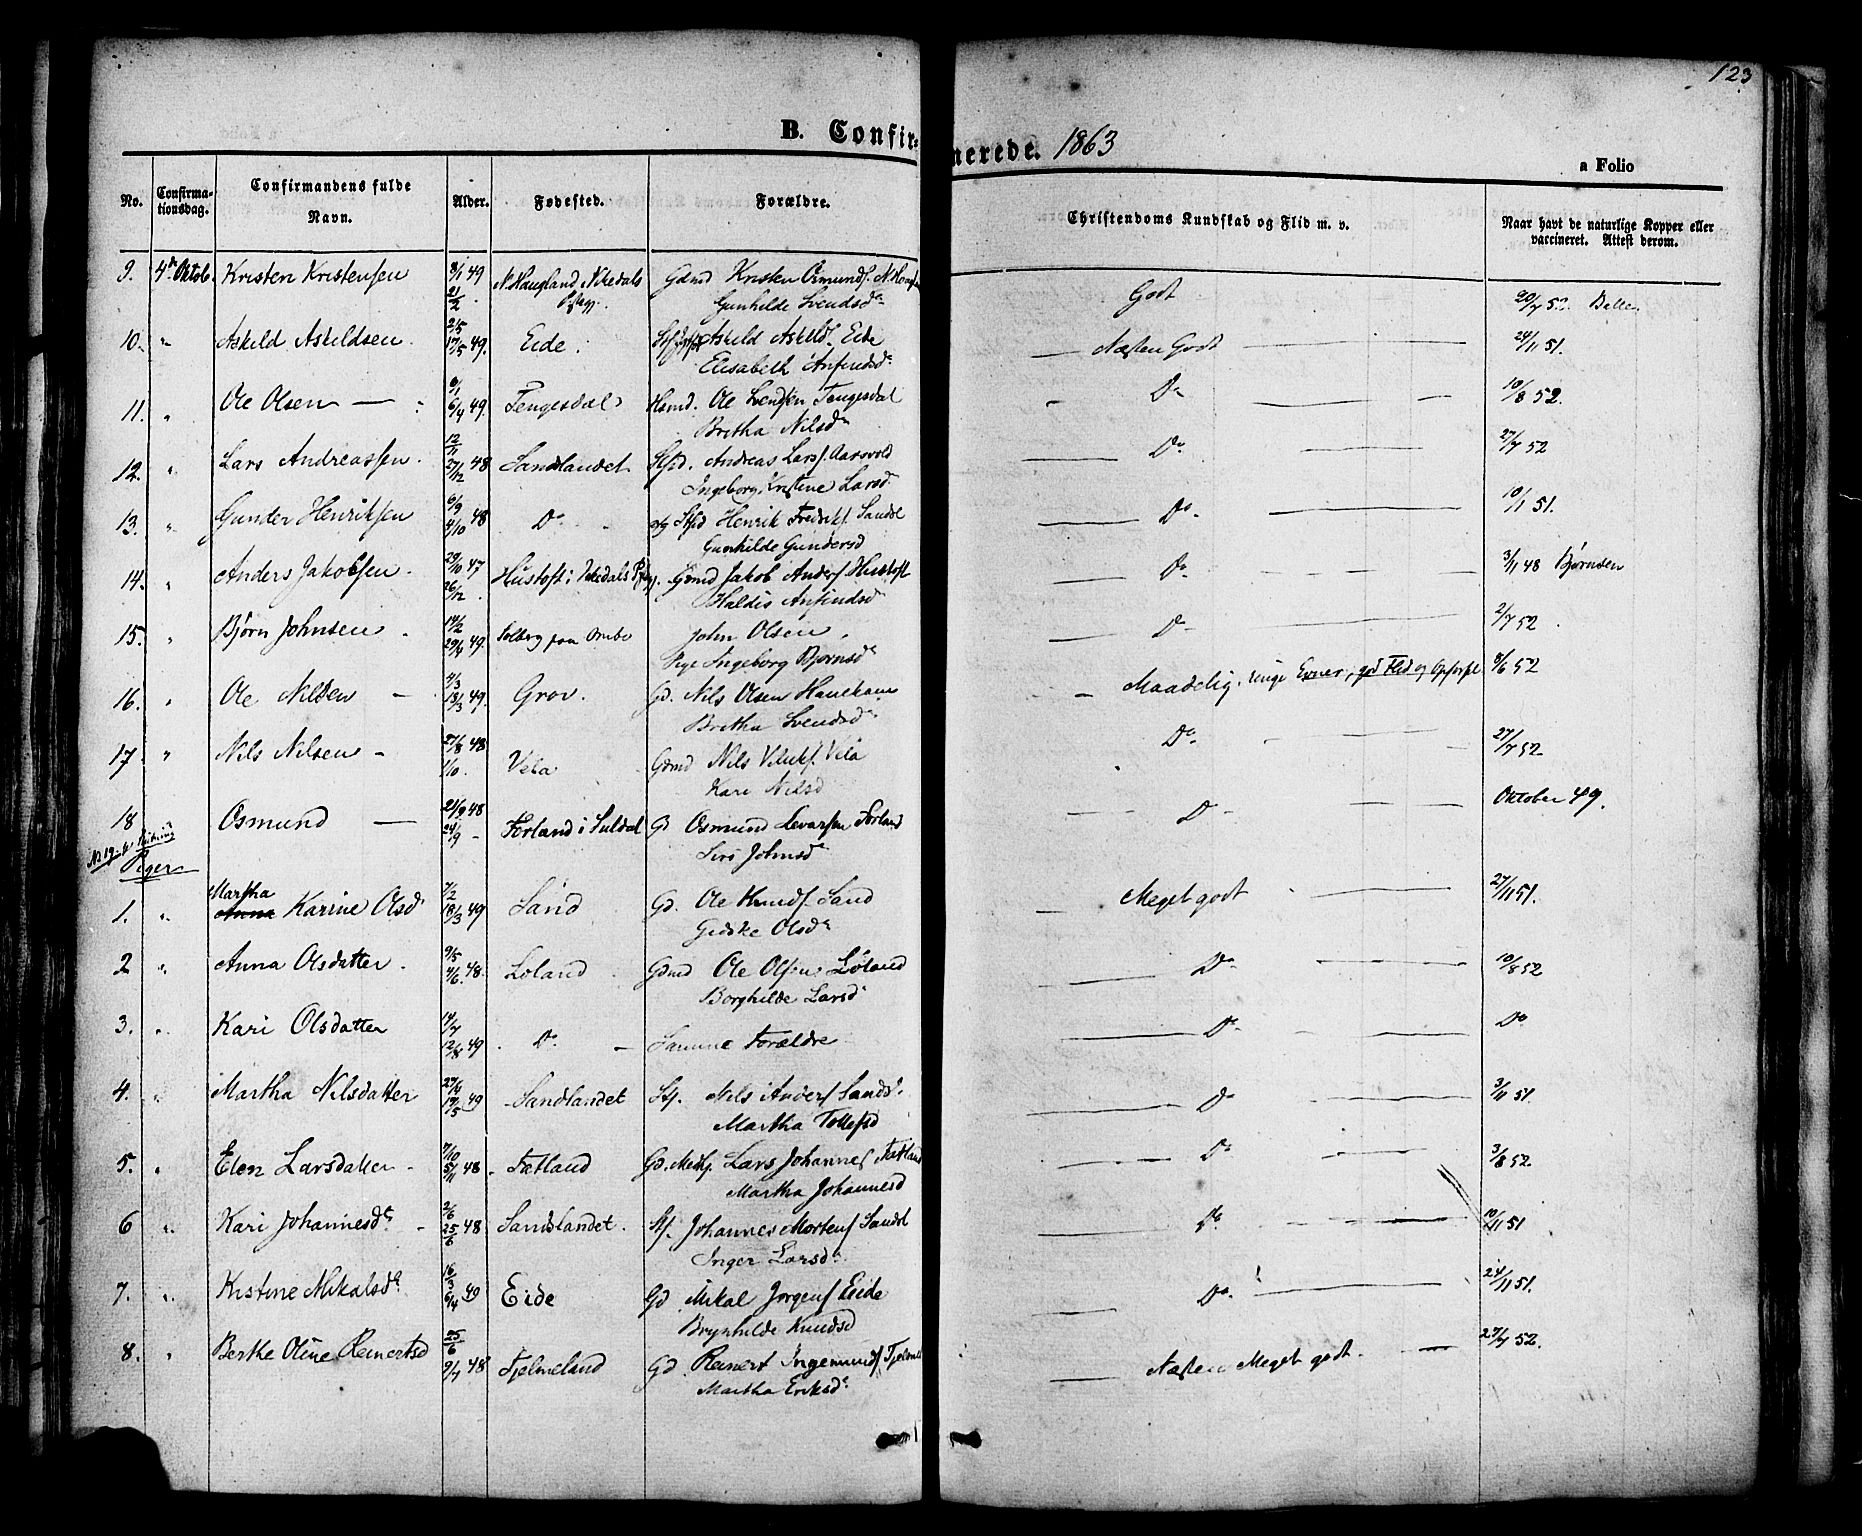 123
B. Confir=
merede. 1863
a Folio
No. Confirma-tionsdag. Confirmandens fulde Navn. Alder. Fødested. Forældre. Christendoms Kundskab og Flid m. v. Naar havt de naturlige Kopper eller vaccineret. Attest derom.
9. 4de Oktob. Kristen Kristensen 49 N. Haugland, Nikedals Gdmd Kristen Osmunds. Godt 52.
21/2 Gunhilde Svendsd
10. " Askild Askildsen. 17/5 49. Eide. Askild Askilds. Eide Næsten Godt 24/11 51.
Elisabeth Anfindsd
11. " Ole Olsen 6/4 49. Tengesdal Hsmd. Ole Svendsen Tengesdal Do 10/8 52.
Bretha Nilsd
12. " Lars Andreassen. 12/11 27/12 48 Sandlandet Andreas Lars. Aarsvold Do 27/7 52
Ingeborg Kristine Larsd
13. " Gunder Henriksen 6/9 4/10 48 Do Henrik Fredriks. Sandsl Do 10/1 51.
Gunhilde Gundersd
14. " Anders Jakobsen. 29/10 47 Hustoft i Nikedals Gdmd Jakob Anders. Hustoft Do 3/11 48 Bjørnsen
26/12 Haldis Anfindsd
15. " Bjørn Johnsen. 49. Solberg paa Ombo John Olsen Do 2/7 52
Pige Ingeborg Bjørnsd
16. " Ole Nilsen 4/3 13/3 49. Grov. Gd. Nils Olsen Hanekam Maadelig. ringe Evner, god Flid og Opførsel 8/6 52
Bretha Svendsd
17. " Nils Nilsen 27/8 48 Vela Gdmd Nils Vela Do 27/7 52
1/10. Kari Nilsd
18 Osmund 48 Forland i Suldal Gd Osmund Levarsen Forland Do Oktober 49.
24/9 Siri Johnsd
Piger
1. " Martha Anna Karine Olsd 7/2 18/3 49 Sand Gd. Ole Knuds. Sand Meget godt 27/11 51.
Gidske Olsd
2 " Anna Olsdatter. 9/5 4/6. 48. Løland Gdmd Ole Olsen Løland Do 10/8 52
Borghilde Larsd
3. " Kari Olsdatter 14/7 12/8 49 Do Samme Forældre Do Do
4. " Martha Nilsdatter 27/4 49 Sandlandet Stf. Nils Anders. Sandsl. Do 3/11 51.
Martha Tollefsd
5. " Elen Larsdatter 7/10 5/11 48 Fatland Gd. Lars Johannes. Fatland Do 3/8 52.
Martha Johannesd
6 " Kari Johannesd. 2/6 25/6 48 Sandslandet. Johannes Mortens. Sandsl Do 10/11 51
Inger Larsd
7. " Kristine Mikalsd. 16/3 6/4 49 Eide Gd. Mikal Jørgens. Eide Do. 24/11 51.
Brynhilde Knudsd
8. " Berthe Oline Reinertsd 25/6 9/7 48 Tjelmeland Gd. Reinert Ingemunds. Næsten Meget godt. 27/7 52.
Martha Eriksd.